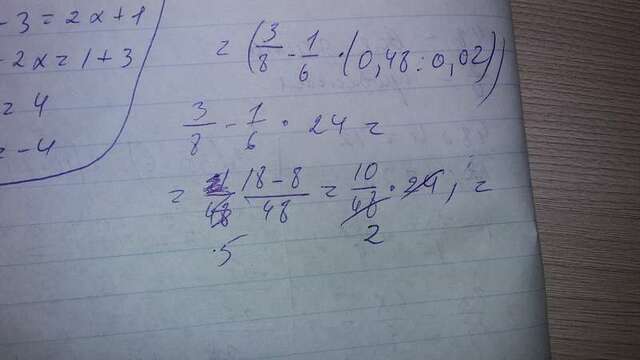 - 3 = 2x + 1
- 2x = 1 + 3
= 4
= -4
= (3/8 - 1/6 · (0,48 : 0,02))
3/8 - 1/6 · 24 =
= 18 - 8/48 = 10/48 · 24, =
2
· 5